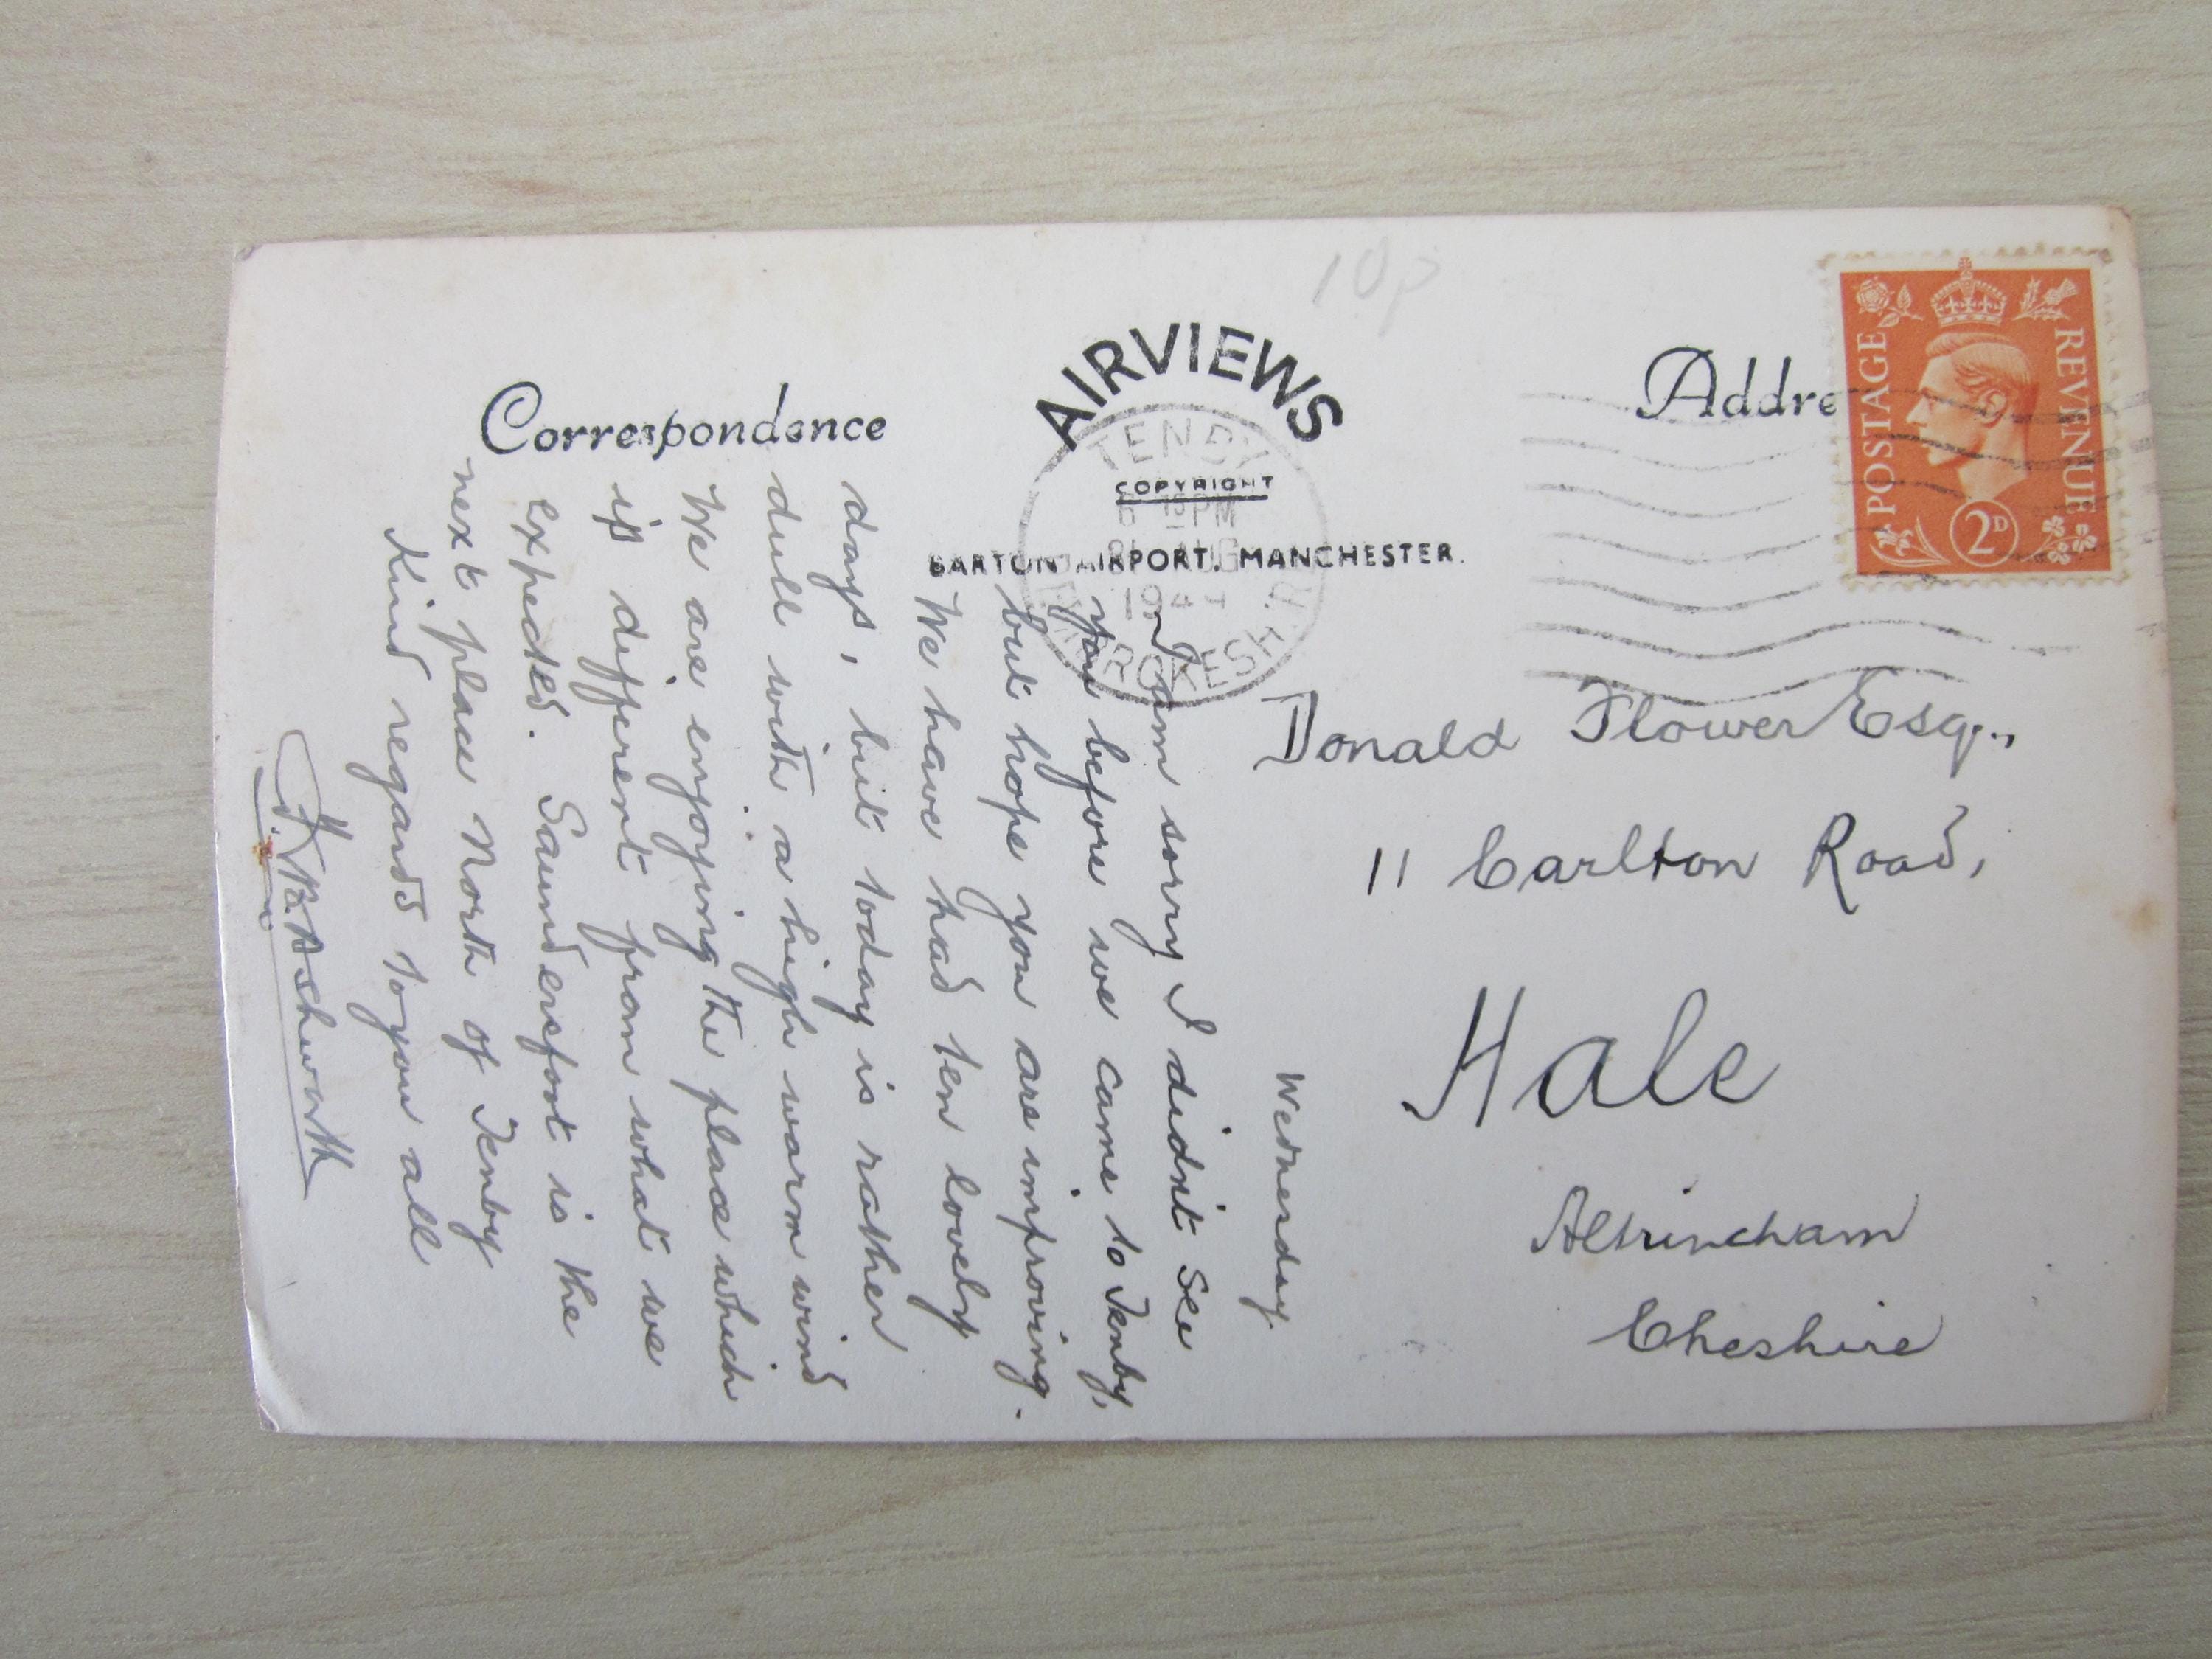 10p
AIRVIEWS
COPYRIGHT
BARTON AIRPORT, MANCHESTER.
Correspondence
Addre
POSTAGE
REVENUE
2D
TENBY
PM
AUG
194
Donald Flower Esq.,
11 Carlton Road,
Hale
Altrincham
Cheshire
Wednesday
I am sorry I didn't see
you before we came to Tenby,
but hope you are improving.
We have had ten lovely
days, but today is rather
dull with a high warm wind
We are enjoying the place which
is different from what we
expected. Saundersfoot is the
next place North of Tenby
Kind regards to you all
Ashworth